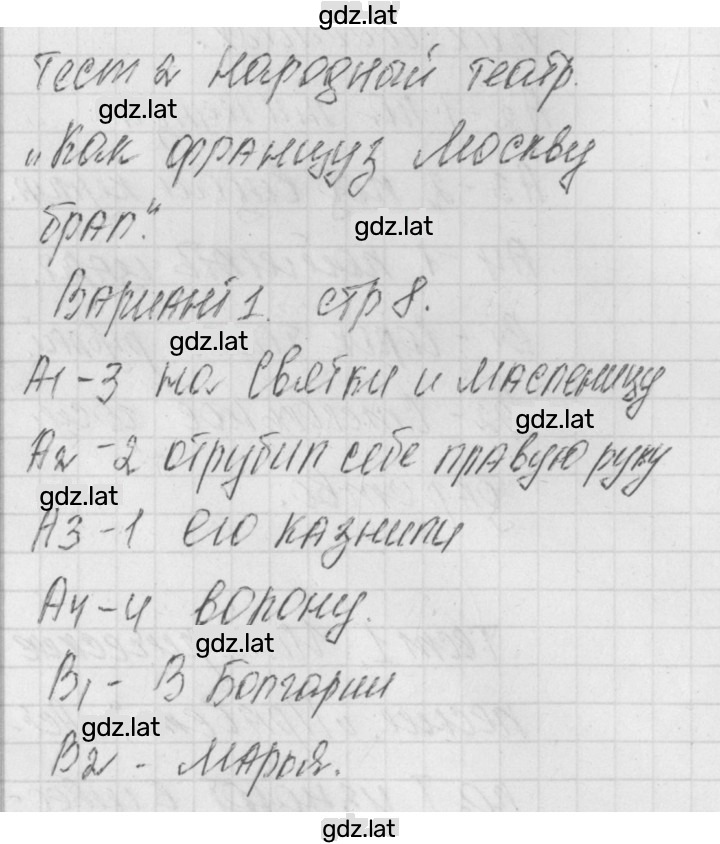 gdz.lat
Тест 2 Народный театр.
gdz.lat
„Как француз Москву
брал“.
gdz.lat
Вариант 1. стр 8.
gdz.lat
А1-3 на Святки и Масленицу
gdz.lat
А2-2 отрубил себе правую руку
gdz.lat
А3-1 его казнили
А4-4 волону.
gdz.lat
В1- В Болгарии
gdz.lat
В2 - Марья.
gdz.lat